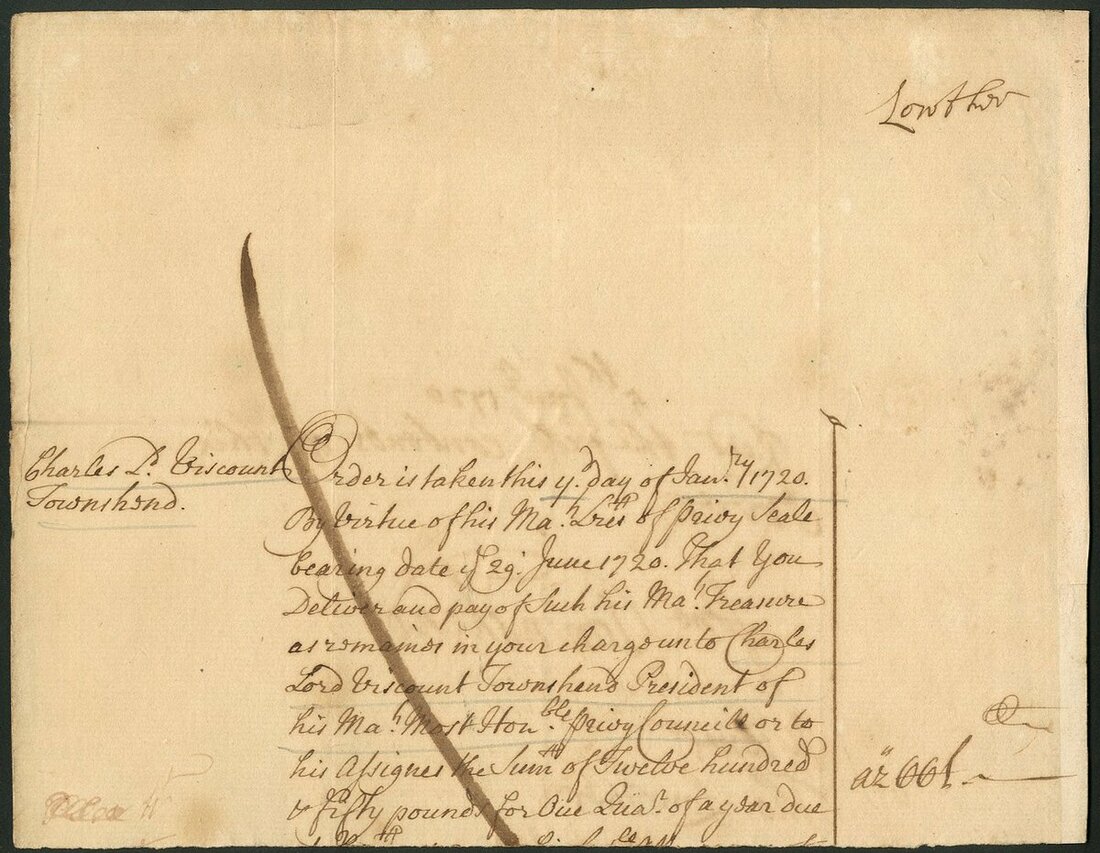 Lowther
Charles Ld. Viscount
Townshend.
Order is taken this yd. day of Janry. 1720.
By Virtue of his Mats. Lres of privy Seale
bearing date ye 29. June 1720. That You
Deliver and pay of Such his Mats. Treasure
as remaines in your charge unto Charles
Lord Viscount Townshend President of
his Mats. Most Honble. privy Councill or to
his Assignes the Summ of Twelve hundred
& fifty pounds for One Quar. of a year due